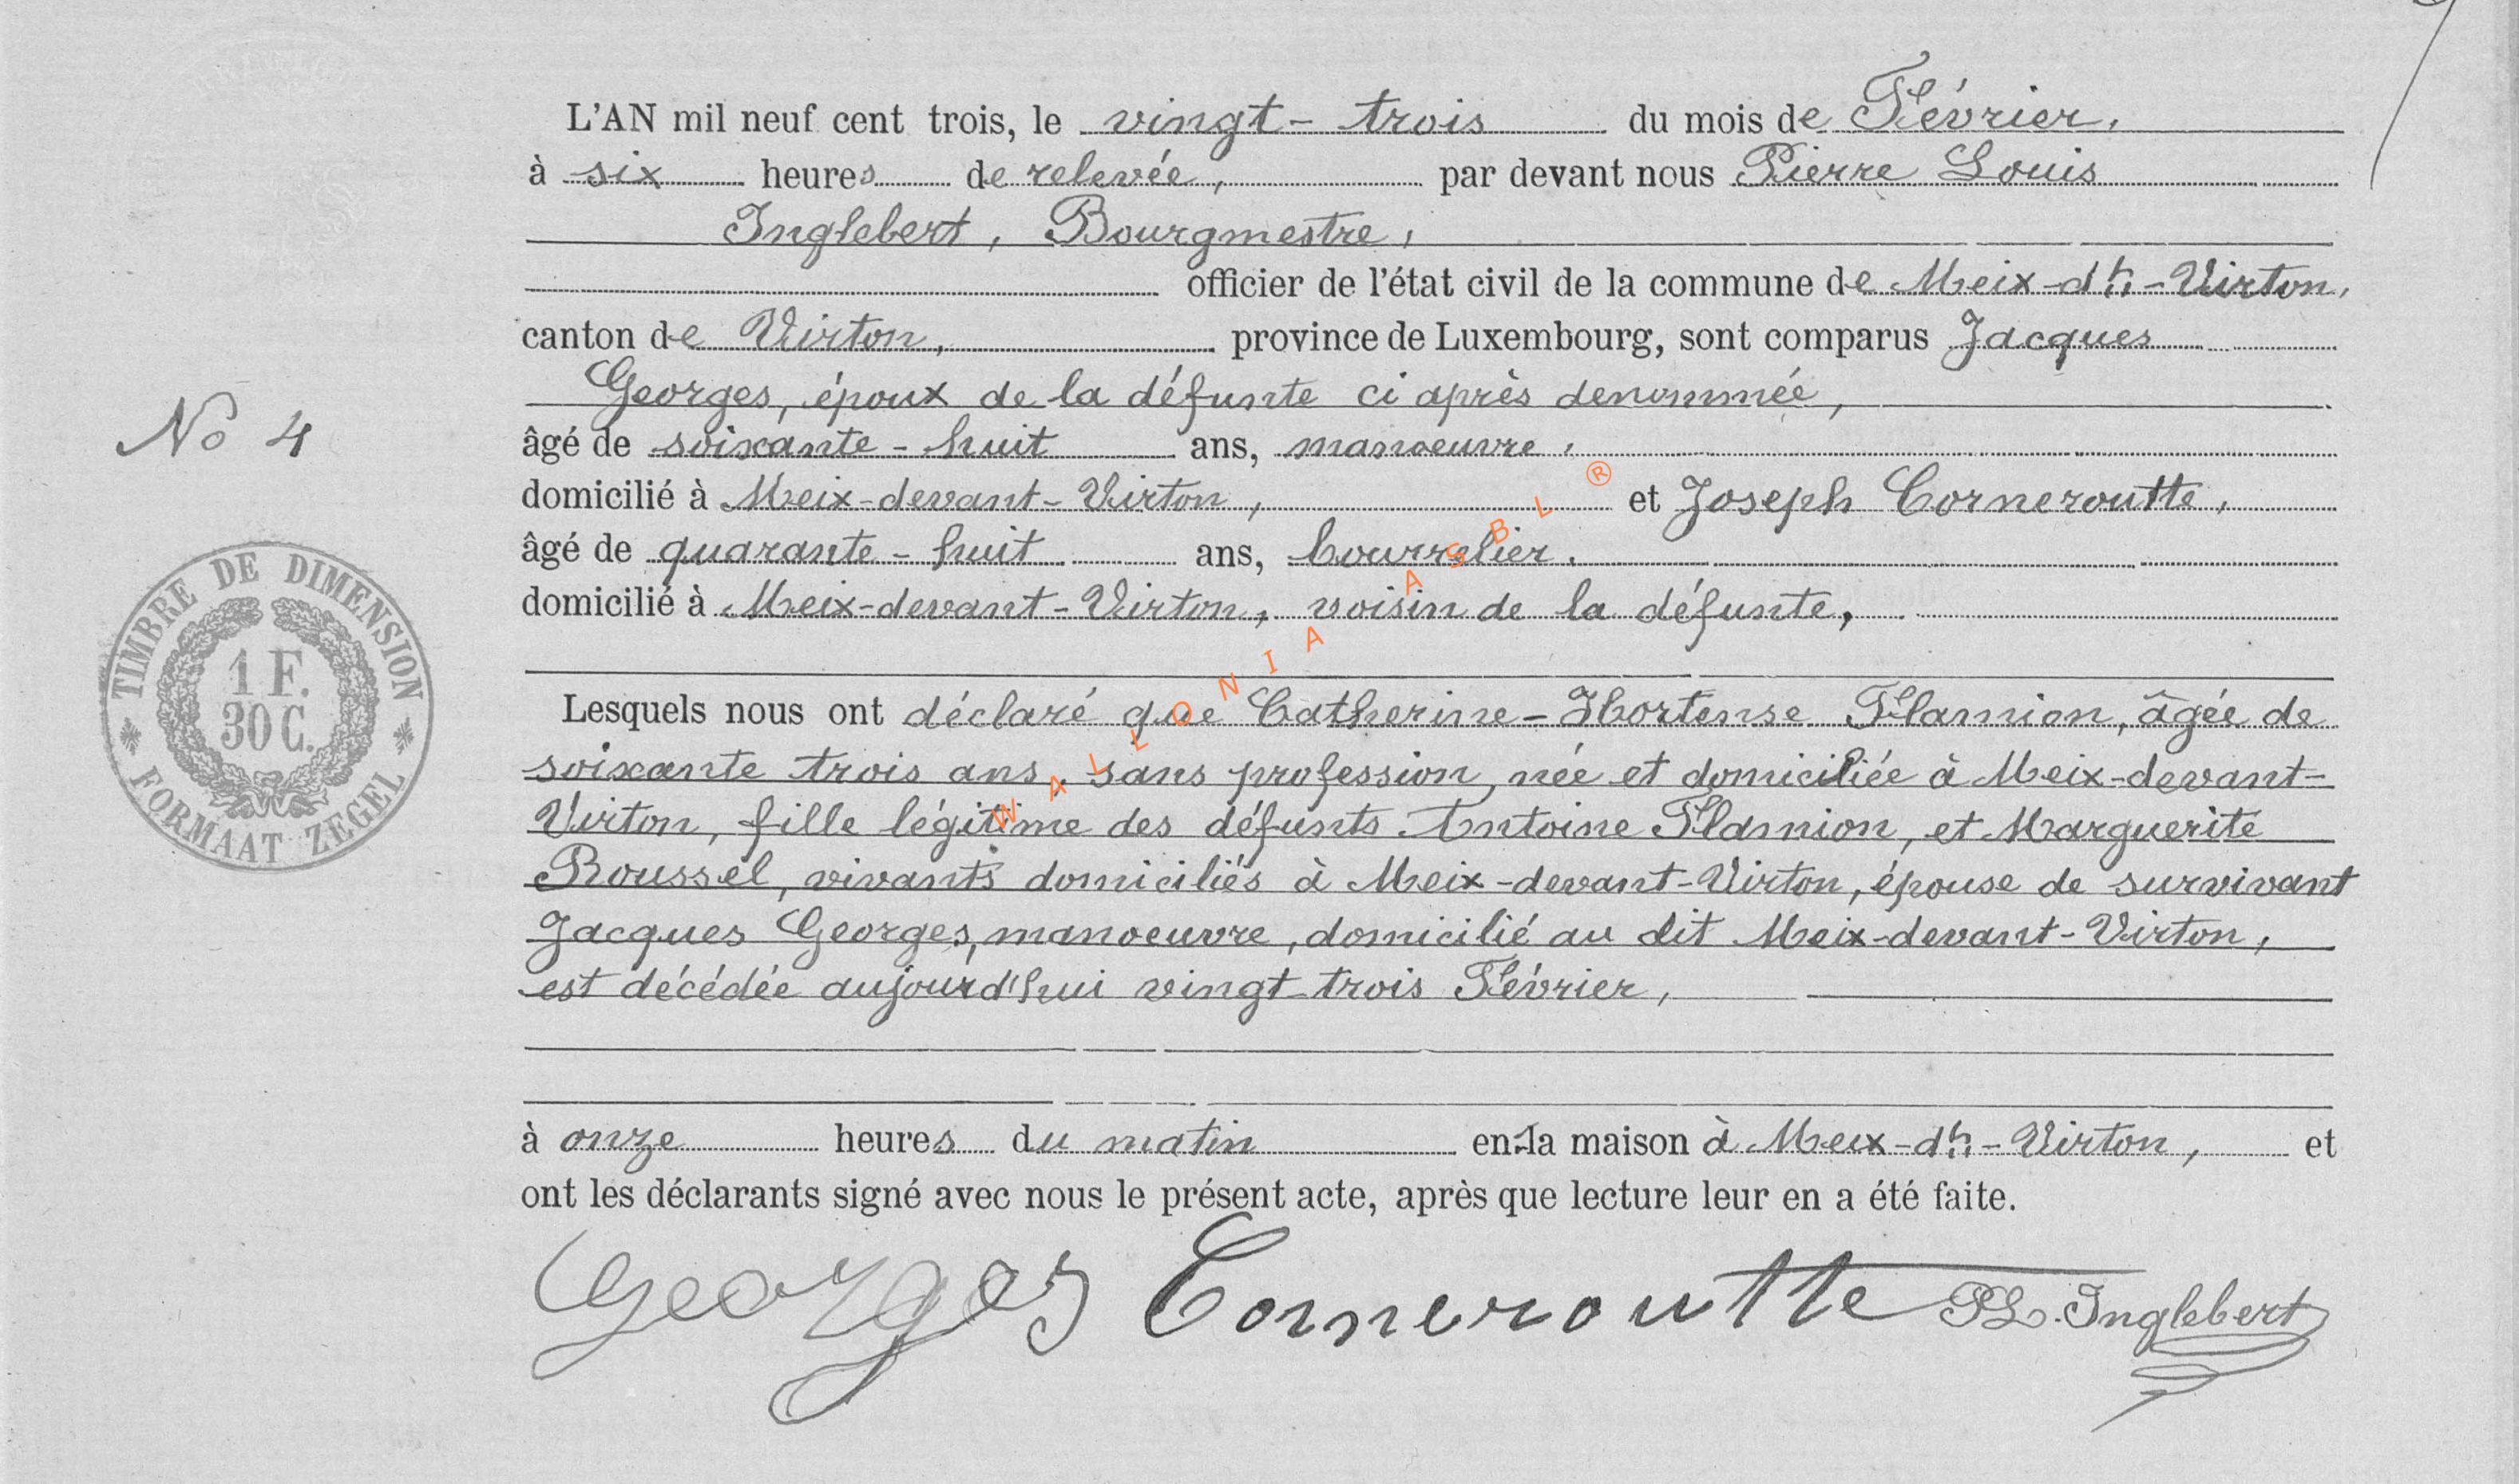 L'AN mil neuf cent trois, le vingt-trois du mois de Février,
à six heures de relevée, par devant nous Pierre Louis
Inglebert, Bourgmestre,
officier de l'état civil de la commune de Meix-dt-Virton,
canton de Virton, province de Luxembourg, sont comparus Jacques
Georges, époux de la défunte ci après denommée,
No 4
âgé de soixante-huit ans, manoeuvre,
domicilié à Meix-devant-Virton, et Joseph Corneroutte,
âgé de quarante-huit ans, bourrelier.
domicilié à Meix-devant-Virton, voisin de la défunte,
TIMBRE DE DIMENSION
1 F.
30 C.
FORMAAT ZEGEL
WALLONIA ASBL ®
Lesquels nous ont déclaré que Catherine-Hortense Flamion, âgée de
soixante trois ans, sans profession, née et domiciliée à Meix-devant-
Virton, fille légitime des défunts Antoine Flamion, et Marguerite
Roussel, vivants domiciliés à Meix-devant-Virton, épouse de survivant
Jacques Georges, manoeuvre, domicilié au dit Meix-devant-Virton,
est décédée aujourd'hui vingt-trois Février,
à onze heures du matin en la maison à Meix-dt-Virton, et
ont les déclarants signé avec nous le présent acte, après que lecture leur en a été faite.
Georges Corneroutte PL. Inglebert